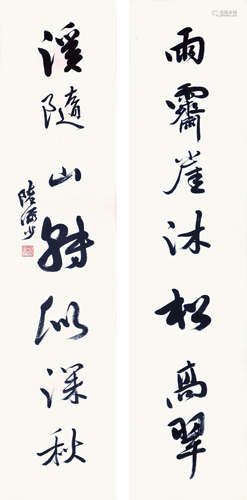 雨霽崖沐松高翠
溪隨山轉似深秋
陸儼少